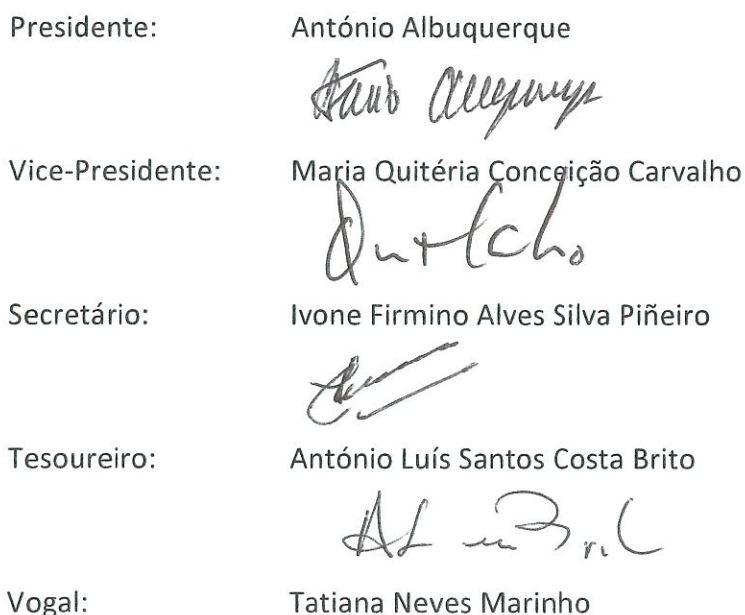 Presidente: António Albuquerque
Vice-Presidente: Maria Quitéria Conceição Carvalho
Secretário: Ivone Firmino Alves Silva Piñeiro
Tesoureiro: António Luís Santos Costa Brito
Vogal: Tatiana Neves Marinho